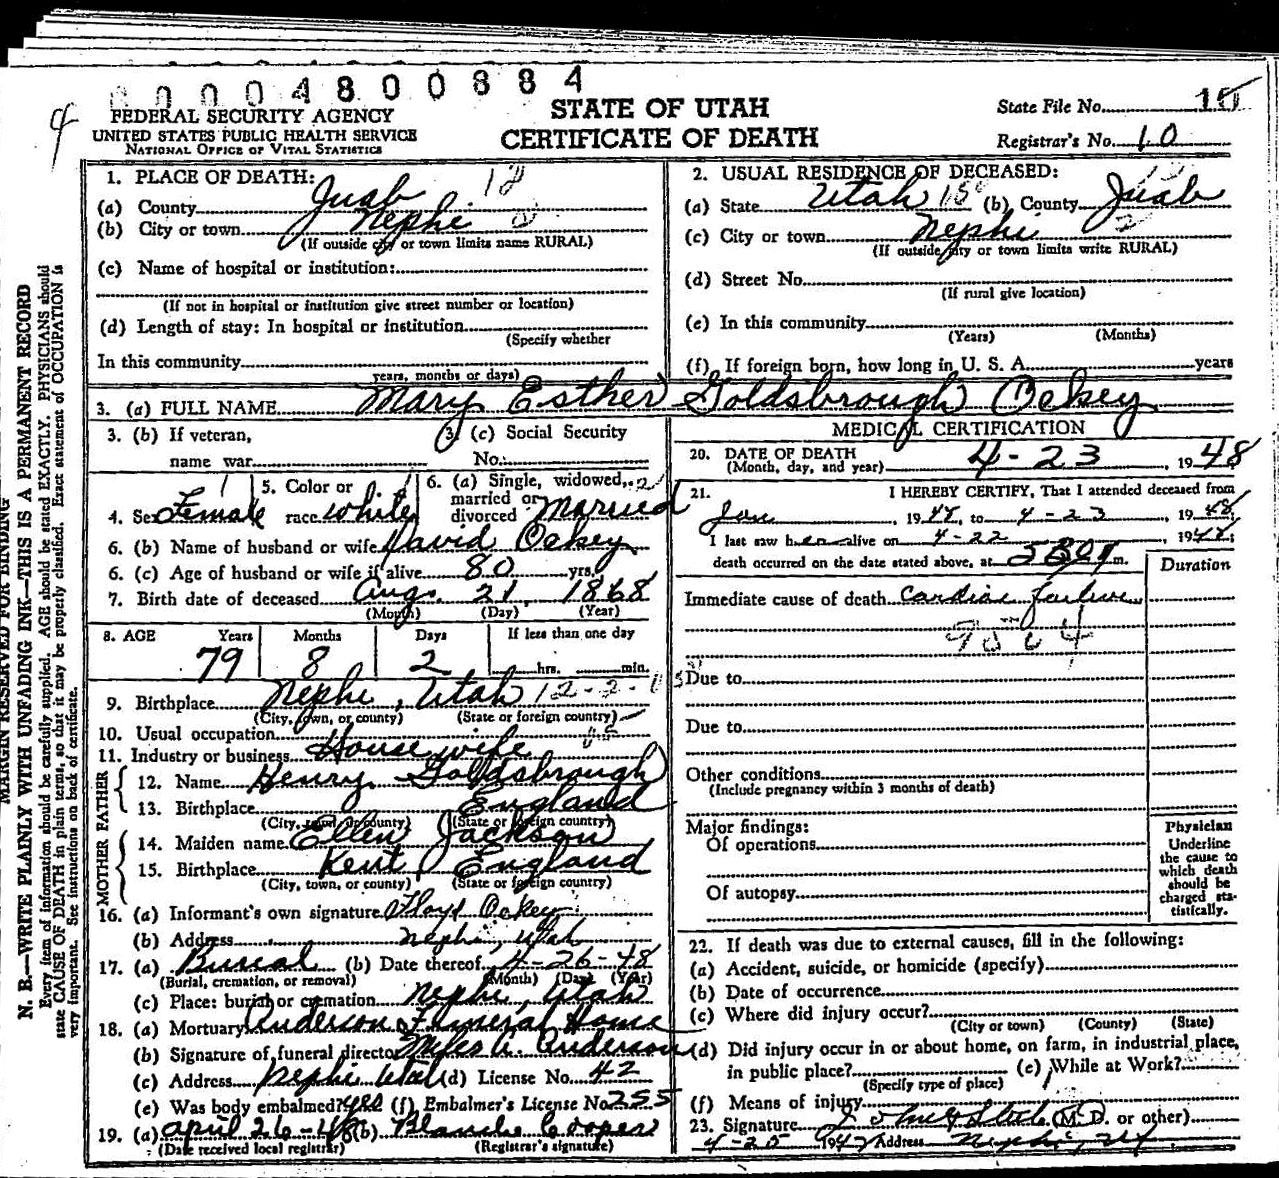 00004800884
4
FEDERAL SECURITY AGENCY
UNITED STATES PUBLIC HEALTH SERVICE
NATIONAL OFFICE OF VITAL STATISTICS
STATE OF UTAH
CERTIFICATE OF DEATH
State File No. 10
Registrar's No. 10
MARGIN RESERVED FOR BINDING
N. B.—WRITE PLAINLY WITH UNFADING INK—THIS IS A PERMANENT RECORD
Every item of information should be carefully supplied. AGE should be stated EXACTLY. PHYSICIANS should
state CAUSE OF DEATH in plain terms, so that it may be properly classified. Exact statement of OCCUPATION is
very important. See instructions on back of certificate.
1. PLACE OF DEATH: 12
(a) County Juab
(b) City or town Nephi 2
(If outside city or town limits name RURAL)
(c) Name of hospital or institution:
(If not in hospital or institution give street number or location)
(d) Length of stay: In hospital or institution
(Specify whether
In this community
years, months or days)
2. USUAL RESIDENCE OF DECEASED:
(a) State Utah (b) County Juab
(c) City or town Nephi 2
(If outside city or town limits write RURAL)
(d) Street No.
(If rural give location)
(e) In this community
(Years) (Months)
(f) If foreign born, how long in U. S. A. years
3. (a) FULL NAME Mary Esther Goldsbrough Ockey
3. (b) If veteran,
name war
3. (c) Social Security
No.
4. Sex Female
5. Color or
race White
6. (a) Single, widowed,
married or
divorced Married
6. (b) Name of husband or wife David Ockey
6. (c) Age of husband or wife if alive 80 yrs.
7. Birth date of deceased Aug. 21, 1868
(Month) (Day) (Year)
8. AGE Years Months Days If less than one day
79 8 2 hrs. min.
9. Birthplace Nephi, Utah 12-2-
(City, town, or county) (State or foreign country)
10. Usual occupation
11. Industry or business Housewife
FATHER
12. Name Henry Goldsbrough
13. Birthplace England
(City, town, or county) (State or foreign country)
MOTHER
14. Maiden name Ellen Jackson
15. Birthplace Kent England
(City, town, or county) (State or foreign country)
16. (a) Informant's own signature Floyd Ockey
(b) Address Nephi, Utah
17. (a) Burial (b) Date thereof 4-26-48
(Burial, cremation, or removal) (Month) (Day) (Year)
(c) Place: burial or cremation Nephi, Utah
18. (a) Mortuary Anderson Funeral Home
(b) Signature of funeral director Miles A. Anderson
(c) Address Nephi Utah (d) License No. 42
(e) Was body embalmed? yes (f) Embalmer's License No. 255
19. (a) April 26-48 (b) Blanche Cooper
(Date received local registrar) (Registrar's signature)
MEDICAL CERTIFICATION
20. DATE OF DEATH
(Month, day, and year) 4-23, 1948
21. I HEREBY CERTIFY, That I attended deceased from
Jan, 1948, to 4-23, 1948;
I last saw her alive on 4-22, 1948;
death occurred on the date stated above, at m.
Duration
Immediate cause of death cardiac failure
Due to
Due to
Other conditions
(Include pregnancy within 3 months of death)
Major findings:
Of operations
Of autopsy
Physician
Underline
the cause to
which death
should be
charged sta-
tistically.
22. If death was due to external causes, fill in the following:
(a) Accident, suicide, or homicide (specify)
(b) Date of occurrence
(c) Where did injury occur?
(City or town) (County) (State)
(d) Did injury occur in or about home, on farm, in industrial place,
in public place? (e) While at Work?
(Specify type of place)
(f) Means of injury
23. Signature (M.D. or other)
4-25 1947 Address Nephi, Ut